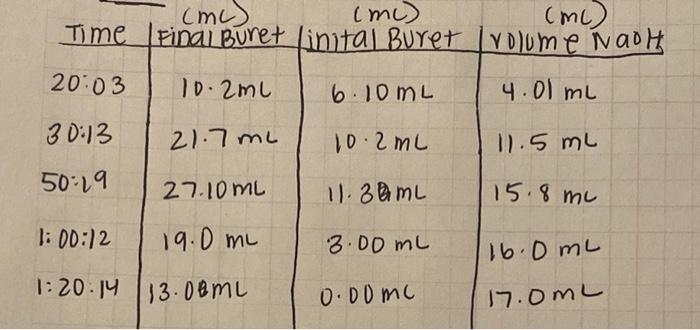 (mL) (mL) (mL)
Time Final Buret inital Buret volume NaOH
20:03 10.2mL 6.10mL 4.01 mL
30:13 21.7 mL 10.2 mL 11.5 mL
50:29 27.10mL mL 15.8 mL
1:00:12 19.0 mL 3.00 mL 16.0 mL
1:20:14 0.00 mL 17.0mL